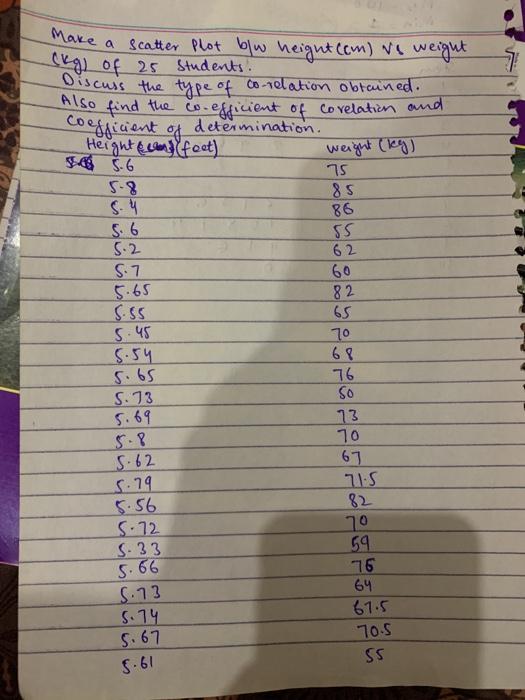 Make a scatter plot b/w height (cm) vs weight
(kg) of 25 students.
Discuss the type of co-relation obtained.
Also find the co-efficient of corelation and
coefficient of determination.
Height (feet) weight (kg)
5.6 75
5.8 85
5.4 86
5.6 55
5.2 62
5.7 60
5.65 82
5.55 65
5.45 70
5.54 68
5.65 76
5.73 50
5.69 73
5.8 70
5.62 67
5.79 71.5
5.56 82
5.72 70
5.33 59
5.66 76
5.73 64
5.74 67.5
5.67 70.5
5.61 55